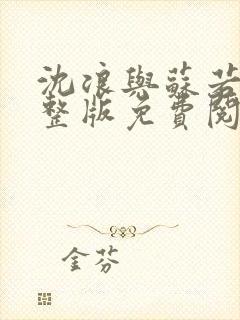 沈浪與蘇若
整版免費閱
金芬